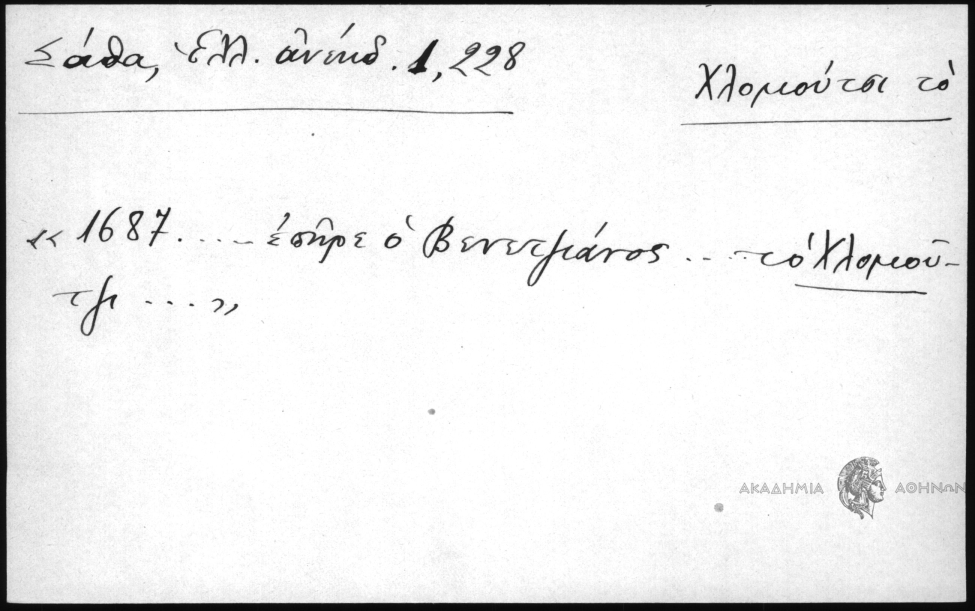 Σάθα, Ἑλλ. ἀνέκδ. 1, 228
Χλομούτσι τὸ
«1687..... ἐπῆρε ὁ Βενετζιάνος .... τὸ Χλομοῦ-
τζι ....»
ΑΚΑΔΗΜΙΑ ΑΘΗΝΩΝ